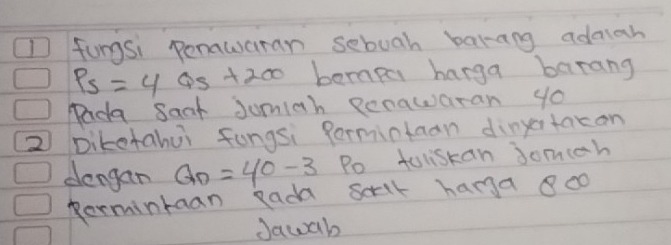 1 fungsi Penawaran sebuah barang adalah
Ps = 4 Qs + 200 berapa harga barang
Pada saat Jumlah Penawaran 40
2 Diketahui fungsi Permintaan dinyatakan
dengan QD = 40 - 3 PD tuliskan Jomlah
Permintaan Pada saat harga 800
Jawab